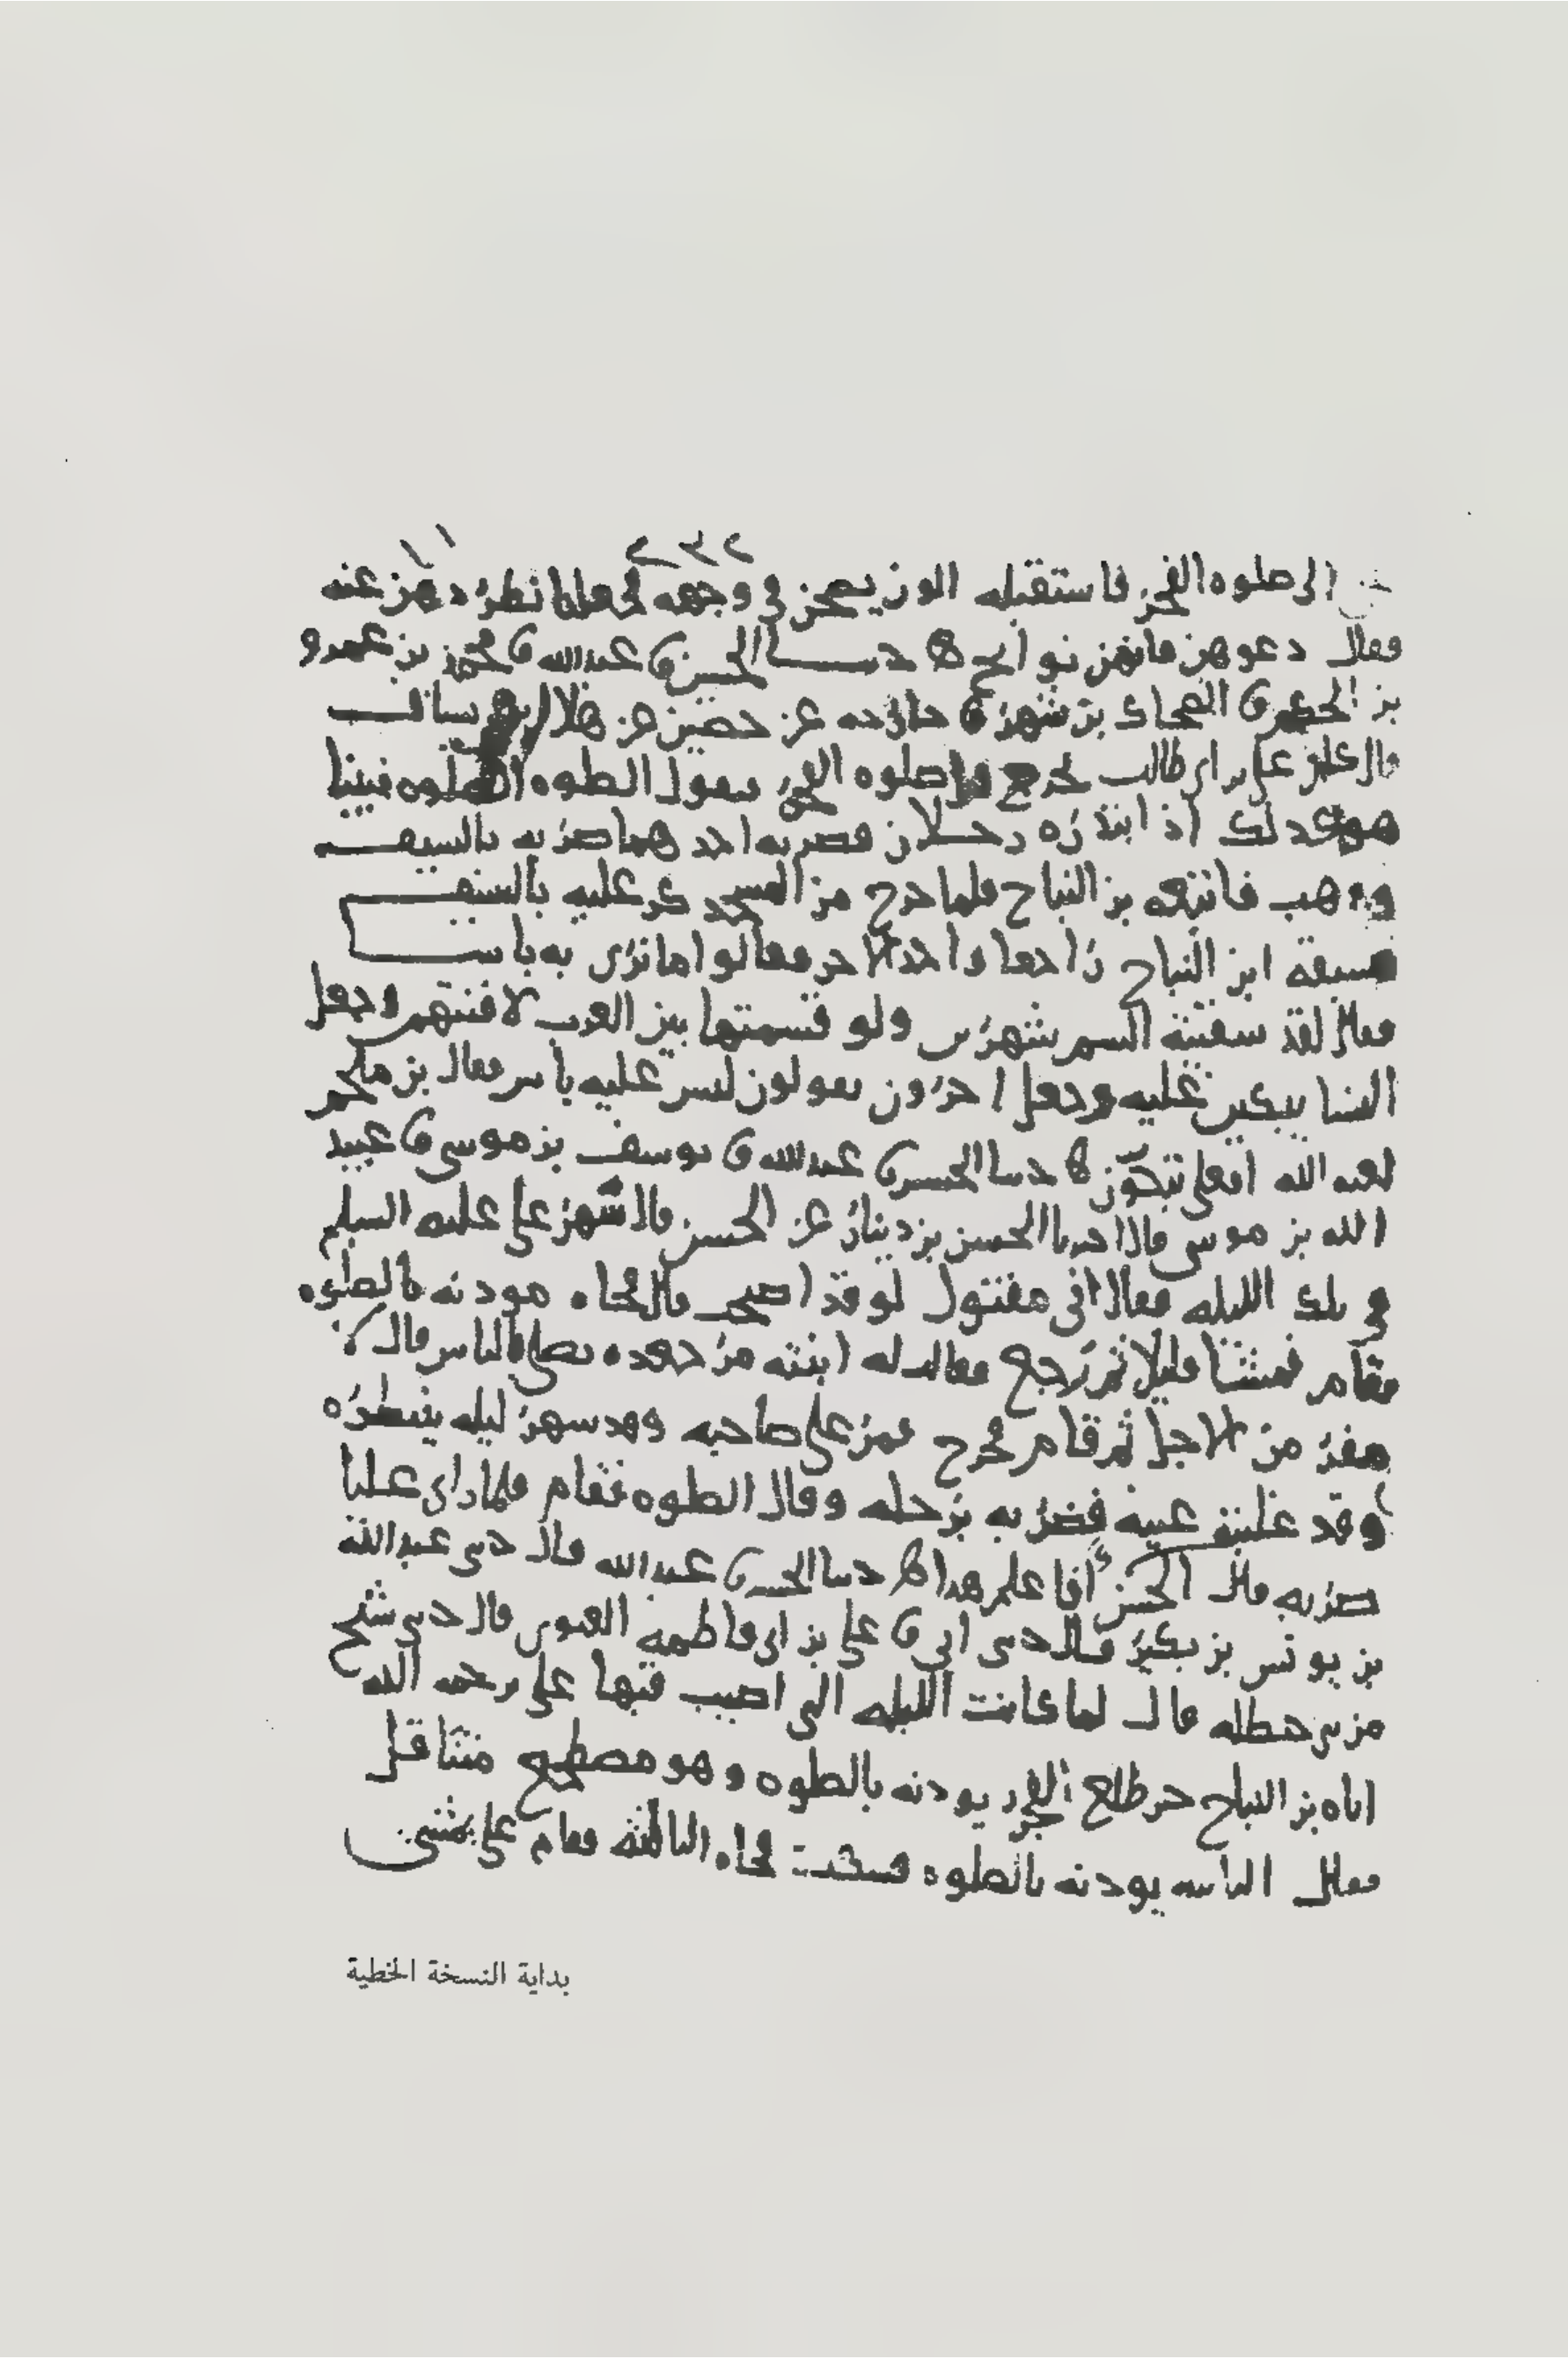 ٢٣٢ ١١
الى صلوه الفجر فاستقبله الوز يصحن في وجهه فجعلنا نطردهن عنه
فقال دعوهن فانهن نوايح حدثنا الحسين عبد الله محمد بن عمرو
بن الحكم الضحاك بن شهر خارجه عن حصين عن هلال بن يساف
قال كان علي بن ابي طالب يخرج الى صلوه الفجر يقول الصلوه الصلوه فبينا
هو كذلك اذ ابتدره رجلان فضربه احدهما ضربه بالسيف
وذهب فاتبعه بن النباح فلما خرج من المسجد كر عليه بالسيف
فسبقه ابن النباح راجعا واخذ الاخر فقالوا ما نرى به باسا
فقال لقد سقيته السم شهرين ولو قسمتها بين العرب لافنتهم وجعل
النسا يبكين عليه وجعل اخرون يقولون ليس عليه باس فقال بن ملجم
لعنه الله افعلي تبكون حدثنا الحسين عبد الله يوسف بن موسى عبيد
الله بن موسى قال اخبرنا الحسن بن دينار عن الحسن قال سهر علي عليه السلم
في تلك الليله فقال اني مقتول لو قد اصبحت قال فجاه موذنه بالصلوه
فقام فمشى قليلا ثم رجع فقالت له ابنته مر جعده يصلي بالناس قال لا
مفر من الاجل ثم قام فخرج فمر على صاحبه وقد سهر ليله ينتظره
وقد غلبته عينه فضربه برجله وقال الصلوه فقام فلما راى عليا
ضربه قال الحسن أفا علم هذا حدثنا الحسين عبد الله قال حدثني عبد الله
بن يونس بن بكير قال حدثني ابي علي بن ابي فاطمه الغنوي قال حدثني شيخ
من بني حنظله قال لما كانت الليله التي اصيب فيها علي رحمه الله
اتاه بن النباح حين طلع الفجر يوذنه بالصلوه وهو مضطجع متثاقل
فقال الثانيه يوذنه بالصلوه فسكت فجاه الثالثه فقام علي يمشي
بداية النسخة الخطية